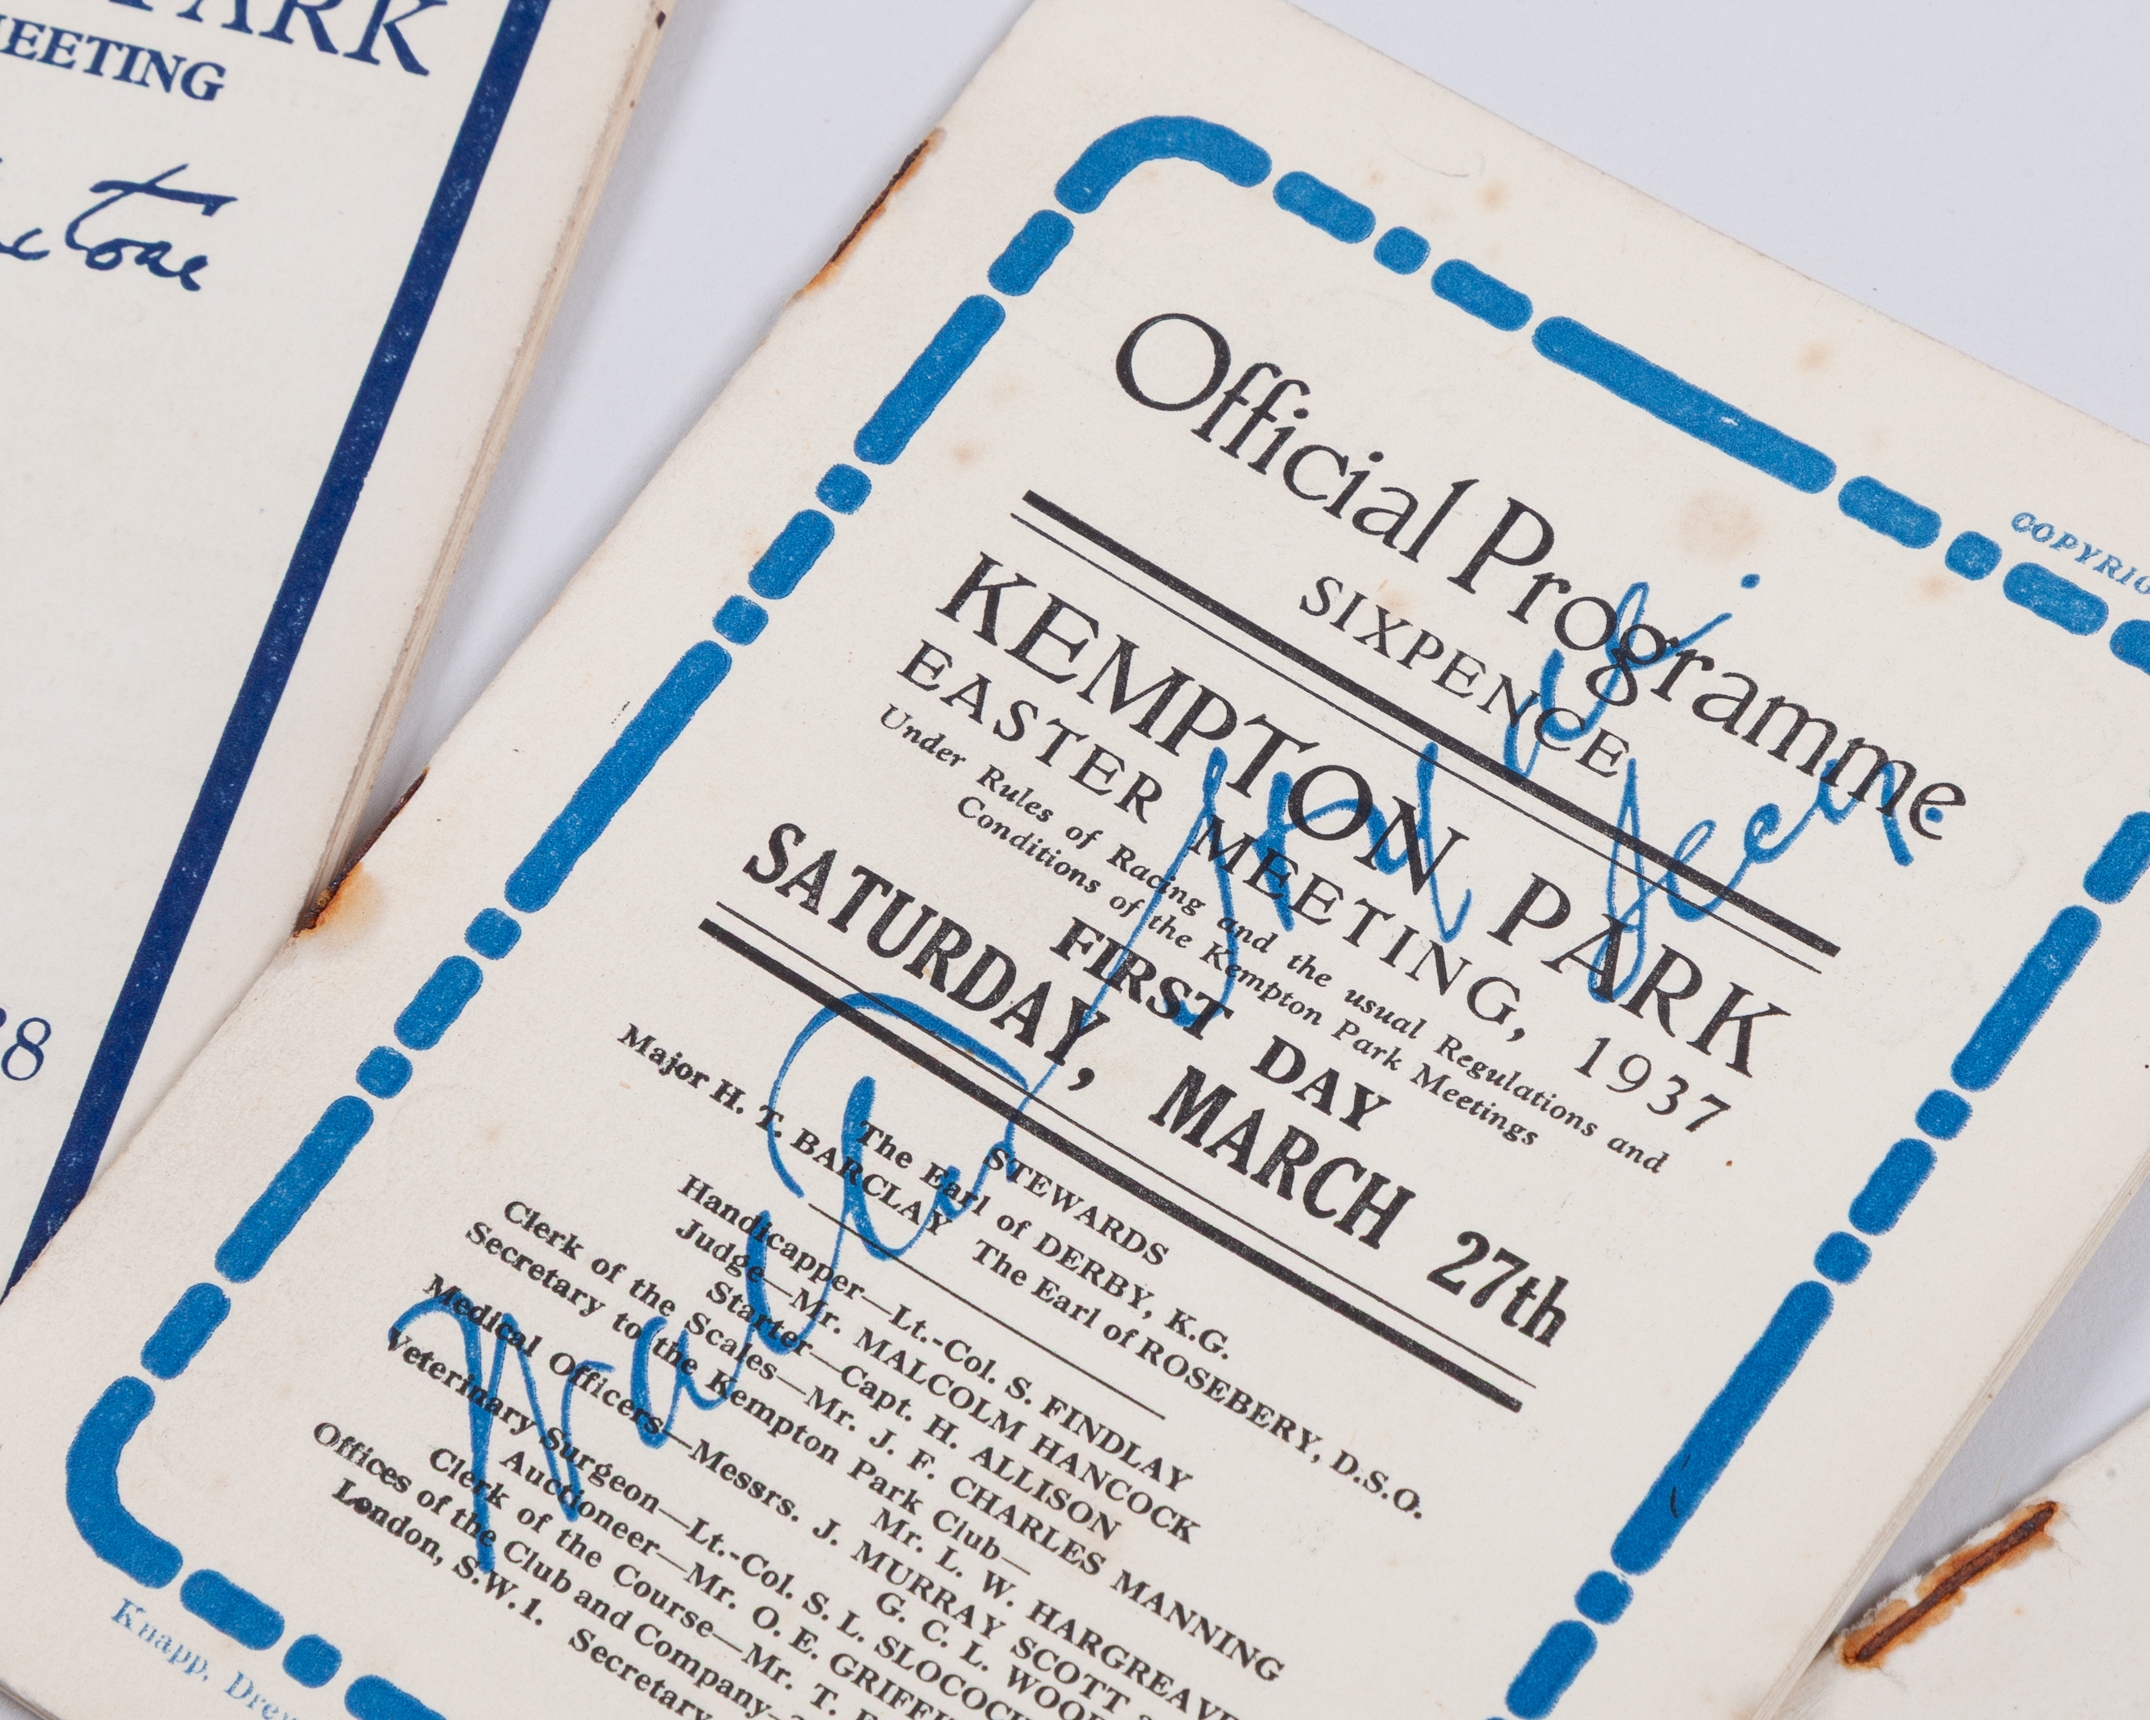 PARK
MEETING
COPYRIG
Official Programme
SIXPENCE
KEMPTON PARK
EASTER MEETING, 1937
Under Rules of Racing and the usual Regulations and
Conditions of the Kempton Park Meetings
FIRST DAY
SATURDAY, MARCH 27th
STEWARDS
The Earl of DERBY, K.G.
Major H. T. BARCLAY The Earl of ROSEBERY, D.S.O.
Handicapper—Lt.-Col. S. FINDLAY
Judge—Mr. MALCOLM HANCOCK
Starter—Capt. H. ALLISON
Clerk of the Scales—Mr. J. F. CHARLES MANNING
Secretary to the Kempton Park Club—
Mr. L. W. HARGREAVE
Medical Officers—Messrs. J. MURRAY SCOTT
G. C. L. WOO
Veterinary Surgeon—Lt.-Col. S. L. SLOCOCK
Auctioneer—Mr. O. E. GRIFFI
Clerk of the Course—Mr. T.
Offices of the Club and Company—
London, S.W.1. Secretary
Knapp, Drew